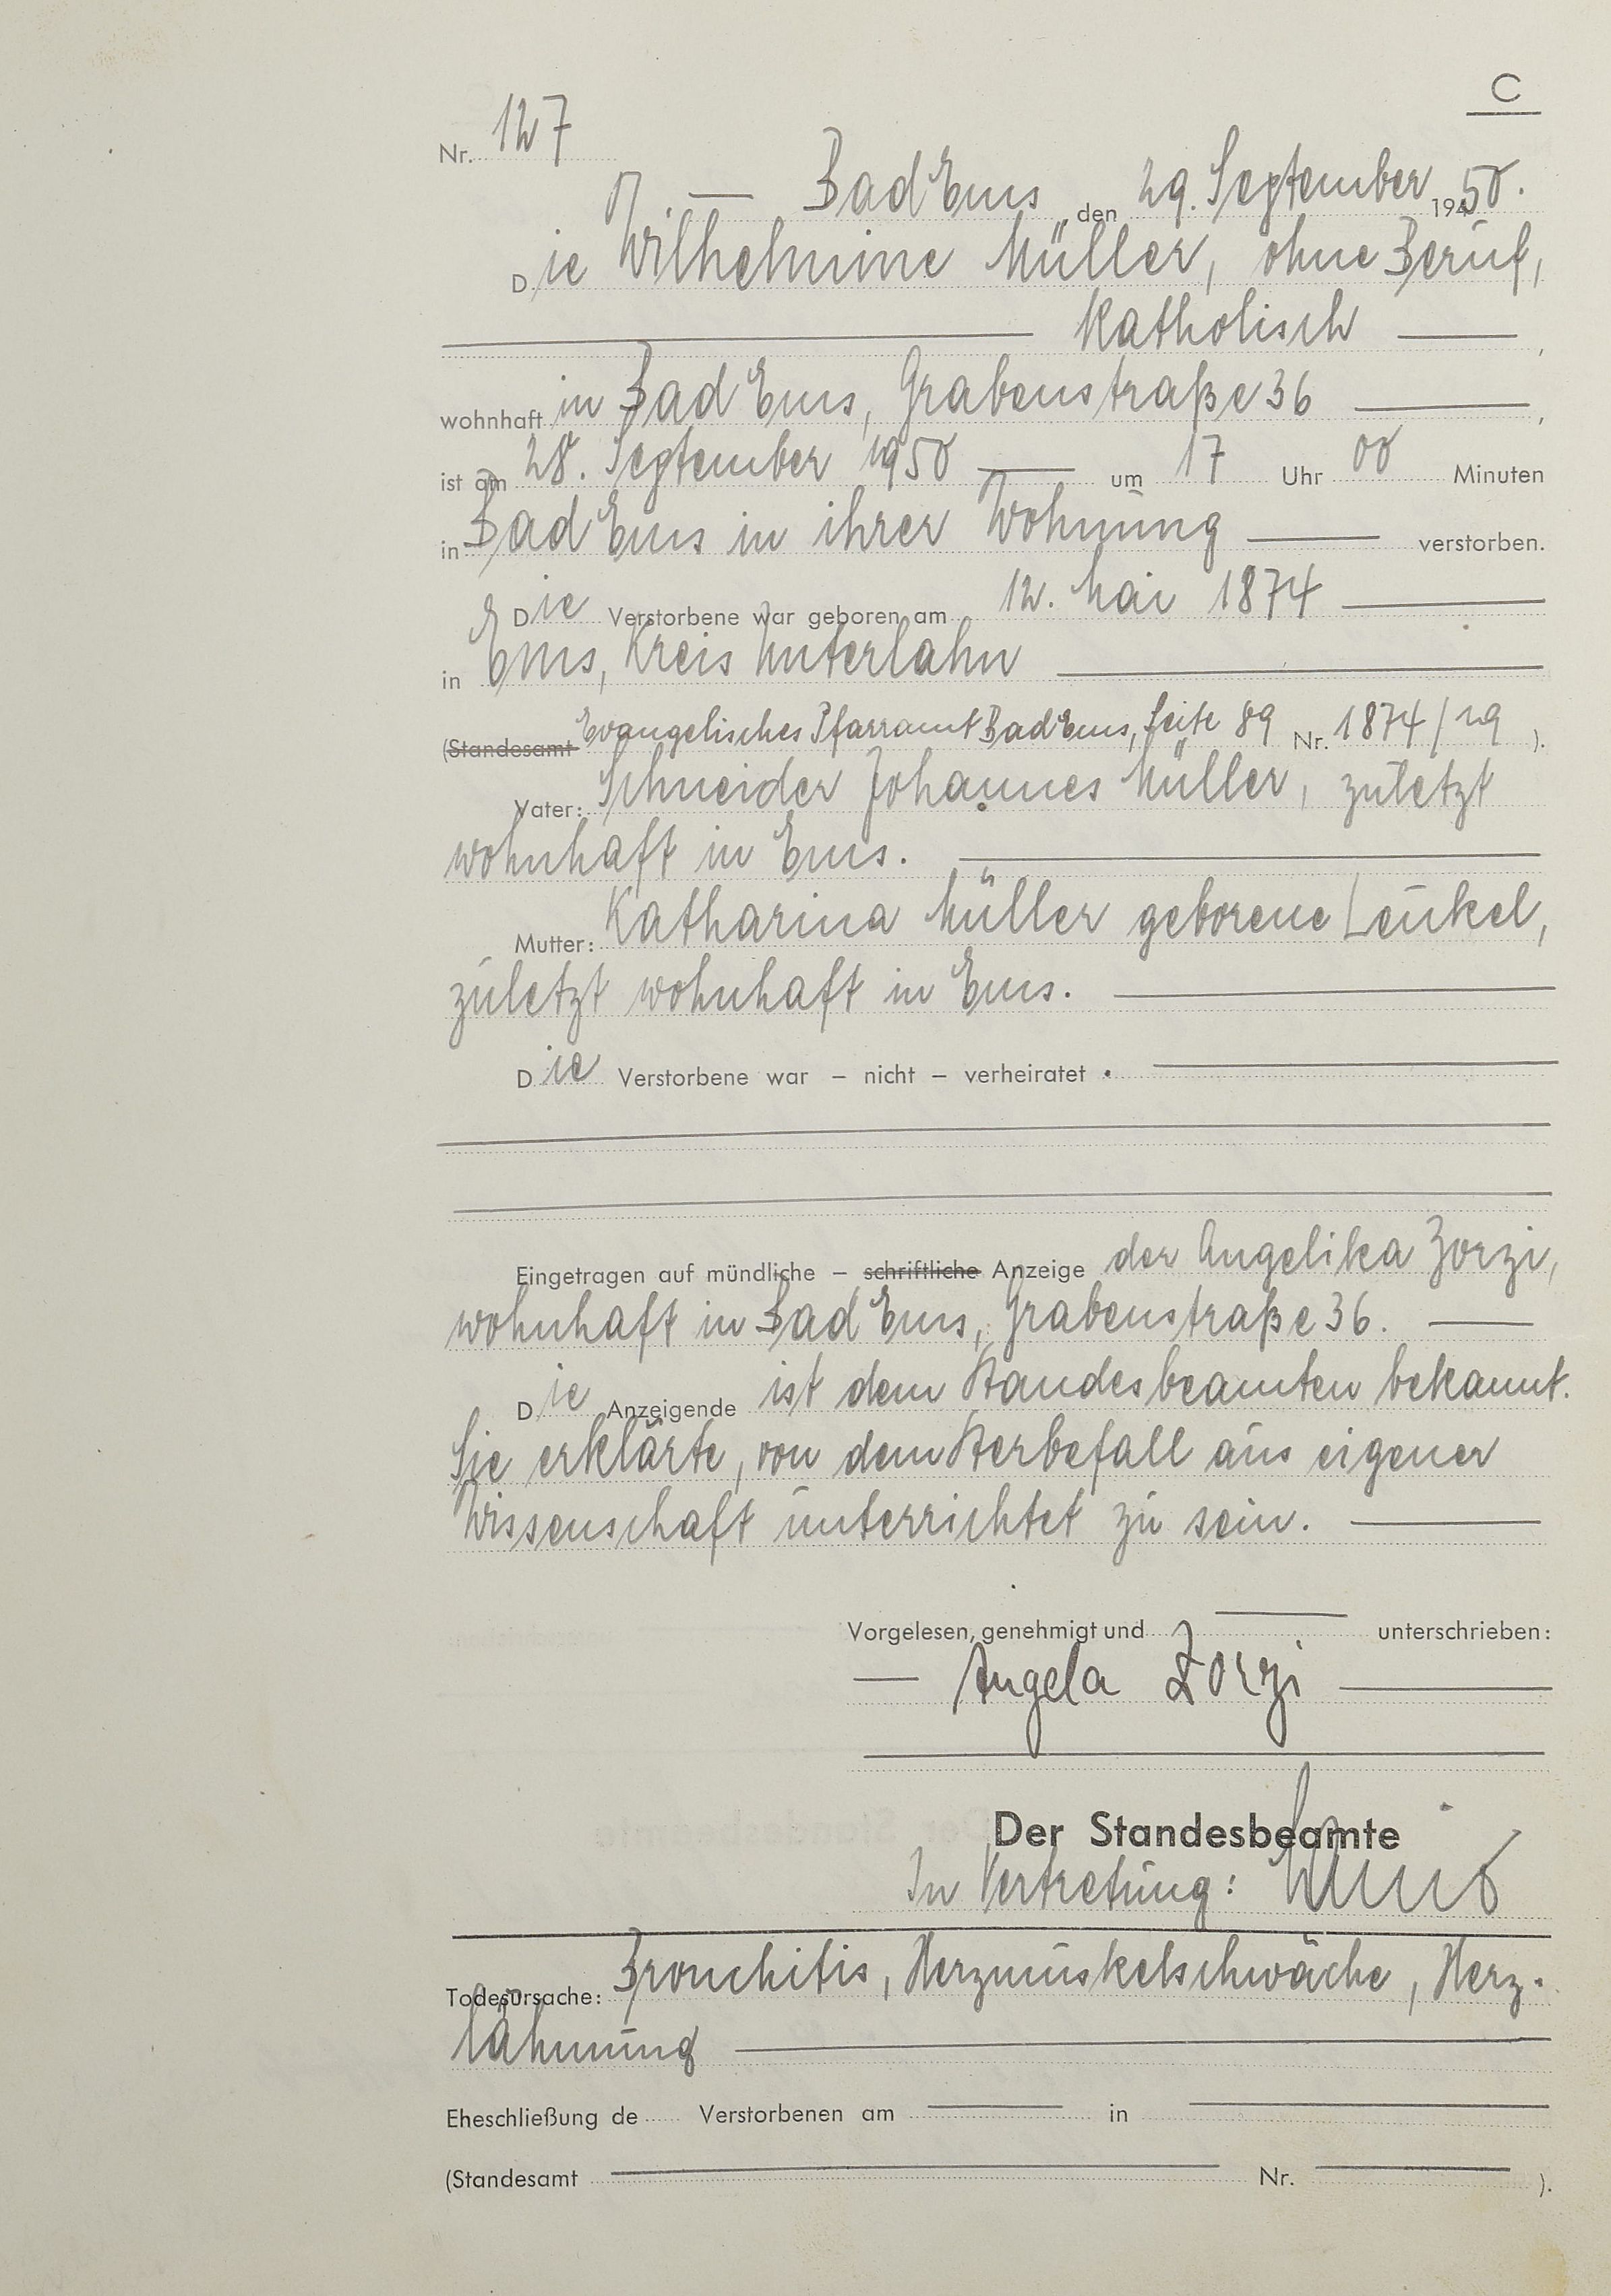 C
Nr. 127
Bad Ems, den 29. September 1950.
Die Wilhelmine Müller, ohne Beruf,
katholisch,
wohnhaft in Bad Ems, Grabenstraße 36,
ist am 28. September 1950 um 17 Uhr 00 Minuten
in Bad Ems in ihrer Wohnung verstorben.
Die Verstorbene war geboren am 12. Mai 1874
in Ems, Kreis Unterlahn
(Standesamt Evangelisches Pfarramt Bad Ems, Seite 89 Nr. 1874/29).
Vater: Schneider Johannes Müller, zuletzt
wohnhaft in Ems.
Mutter: Katharina Müller geborene Leukel,
zuletzt wohnhaft in Ems.
Die Verstorbene war – nicht – verheiratet.
Eingetragen auf mündliche – schriftliche Anzeige der Angelika Zorzi,
wohnhaft in Bad Ems, Grabenstraße 36.
Die Anzeigende ist dem Standesbeamten bekannt.
Sie erklärte, von dem Sterbefall aus eigener
Wissenschaft unterrichtet zu sein.
Vorgelesen, genehmigt und unterschrieben:
Angela Zorzi
Der Standesbeamte
In Vertretung:
Todesursache: Bronchitis, Herzmuskelschwäche, Herz-
lähmung
Eheschließung de Verstorbenen am in
(Standesamt Nr. ).